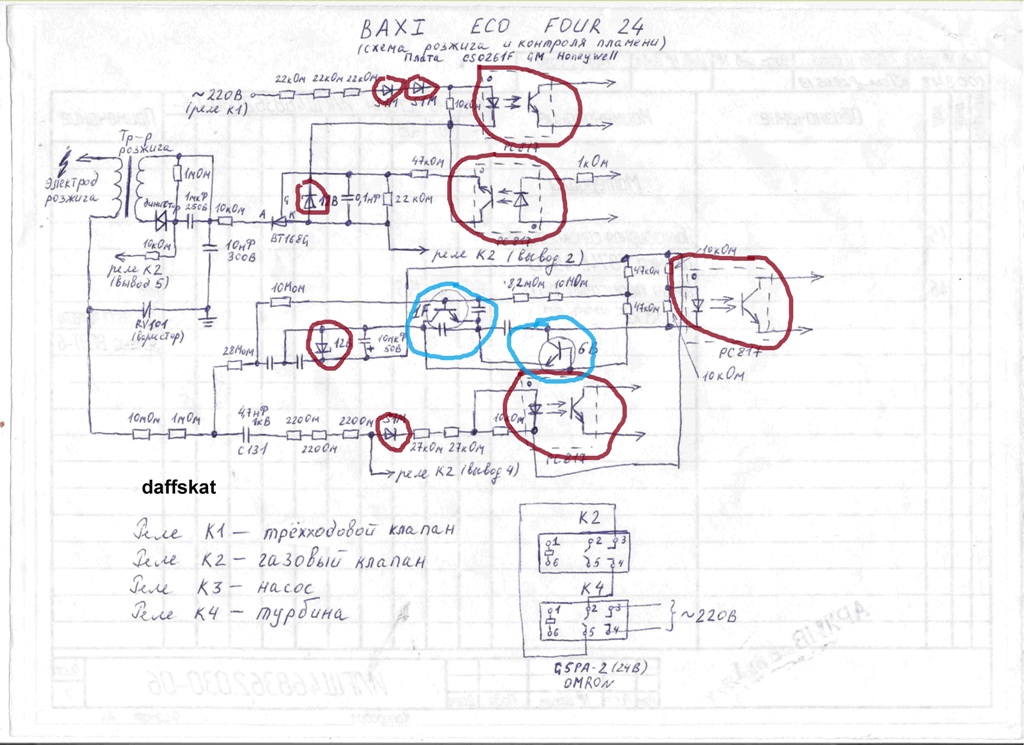 BAXI ECO FOUR 24
(схема розжига и контроля пламени)
плата CSO261F GM Honeywell
~220В
(реле К1)
22кОм 22кОм 22кОм
S1M S1M
10кОм
PC817
Тр-р
розжига
Электрод
розжига
1мОм
динистр
1мкФ
250В
10кОм
А К
G
BT168G
12В
0,1мФ
22кОм
47кОм
1кОм
PC817
10кОм
реле К2
(вывод 5)
10мФ
300В
реле К2 (вывод 2)
RV101
(варистор)
10Мом
1F
8,2мОм 10мОм
47кОм
47кОм
10кОм
PC817
10кОм
28Мом
12В
10мкФ
50В
6В
10мОм 1мОм
4,7нФ
1кВ
С131
220Ом
220Ом
220Ом
S1M
27кОм 27кОм
10кОм
PC817
реле К2 (вывод 4)
daffskat
Реле К1 – трёхходовой клапан
Реле К2 – газовый клапан
Реле К3 – насос
Реле К4 – турбина
К2
1 2 3
6 5 4
К4
1 2 3
6 5 4
~220В
G5PA-2 (24В)
OMRON